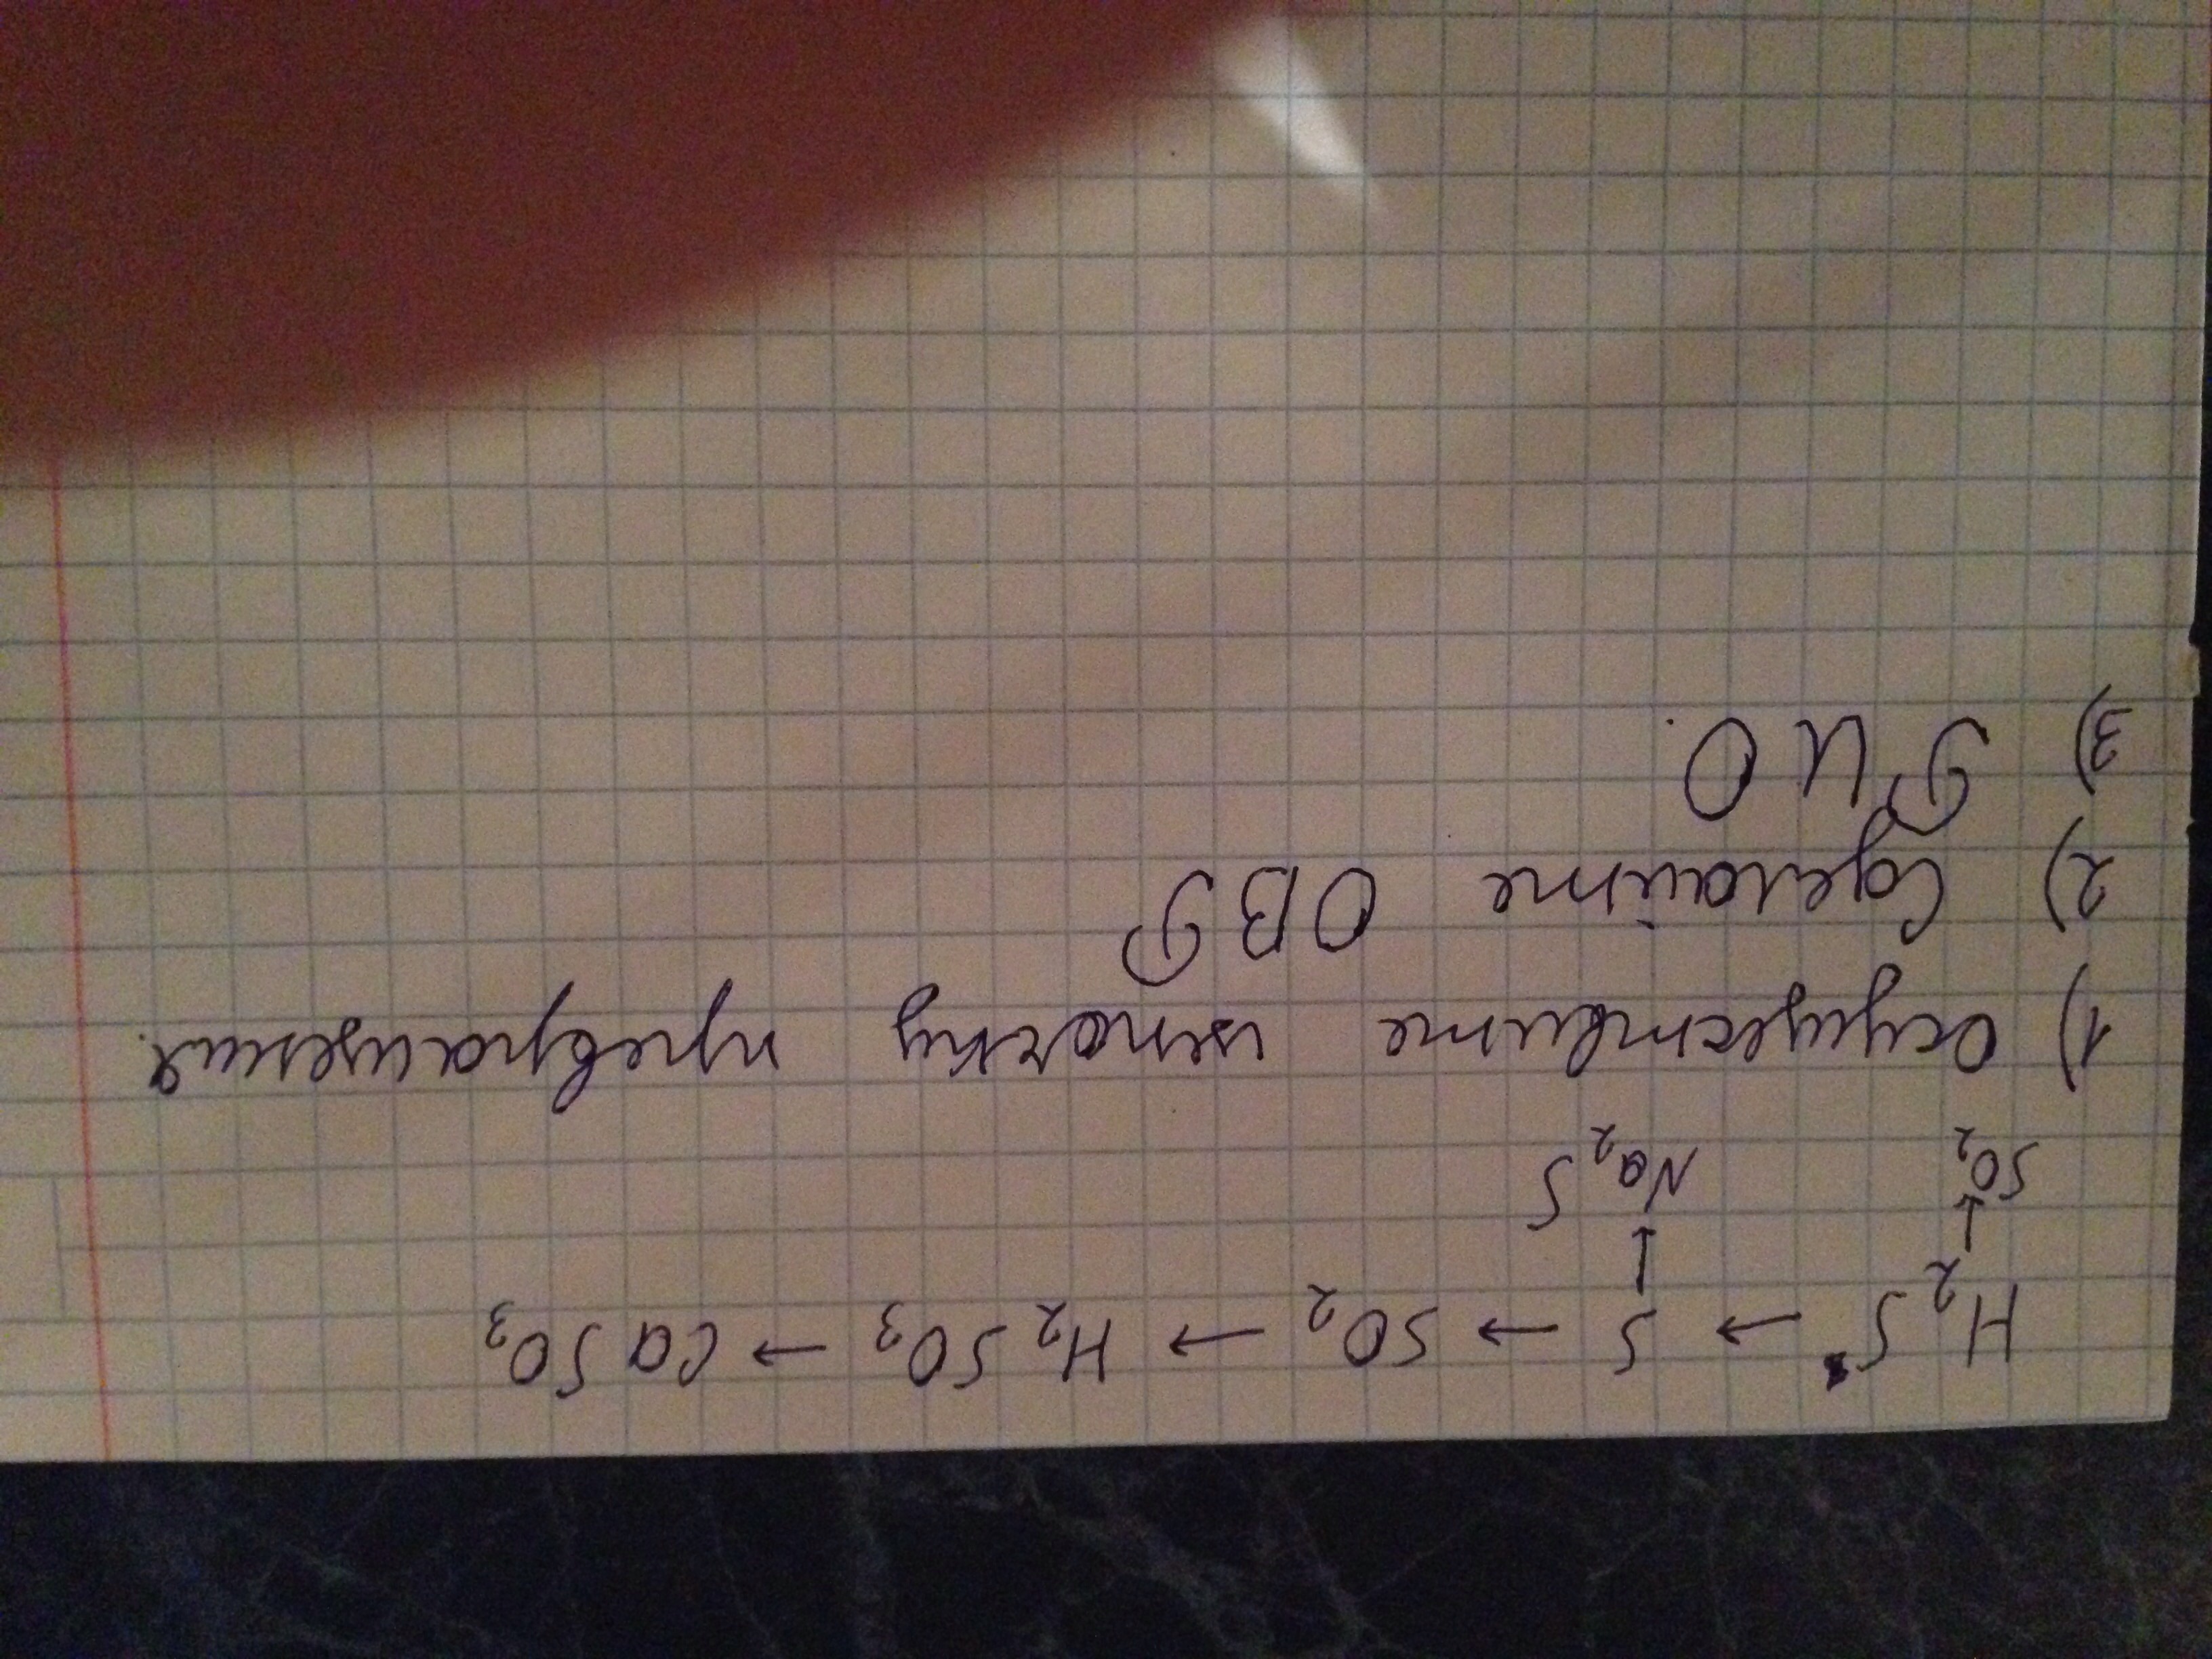 H₂S → S → SO₂ → H₂SO₃ → CaSO₃
↓ ↓
SO₂ Na₂S
1) Осуществите цепочку превращения.
2) Сделайте ОВР
3) РИО.